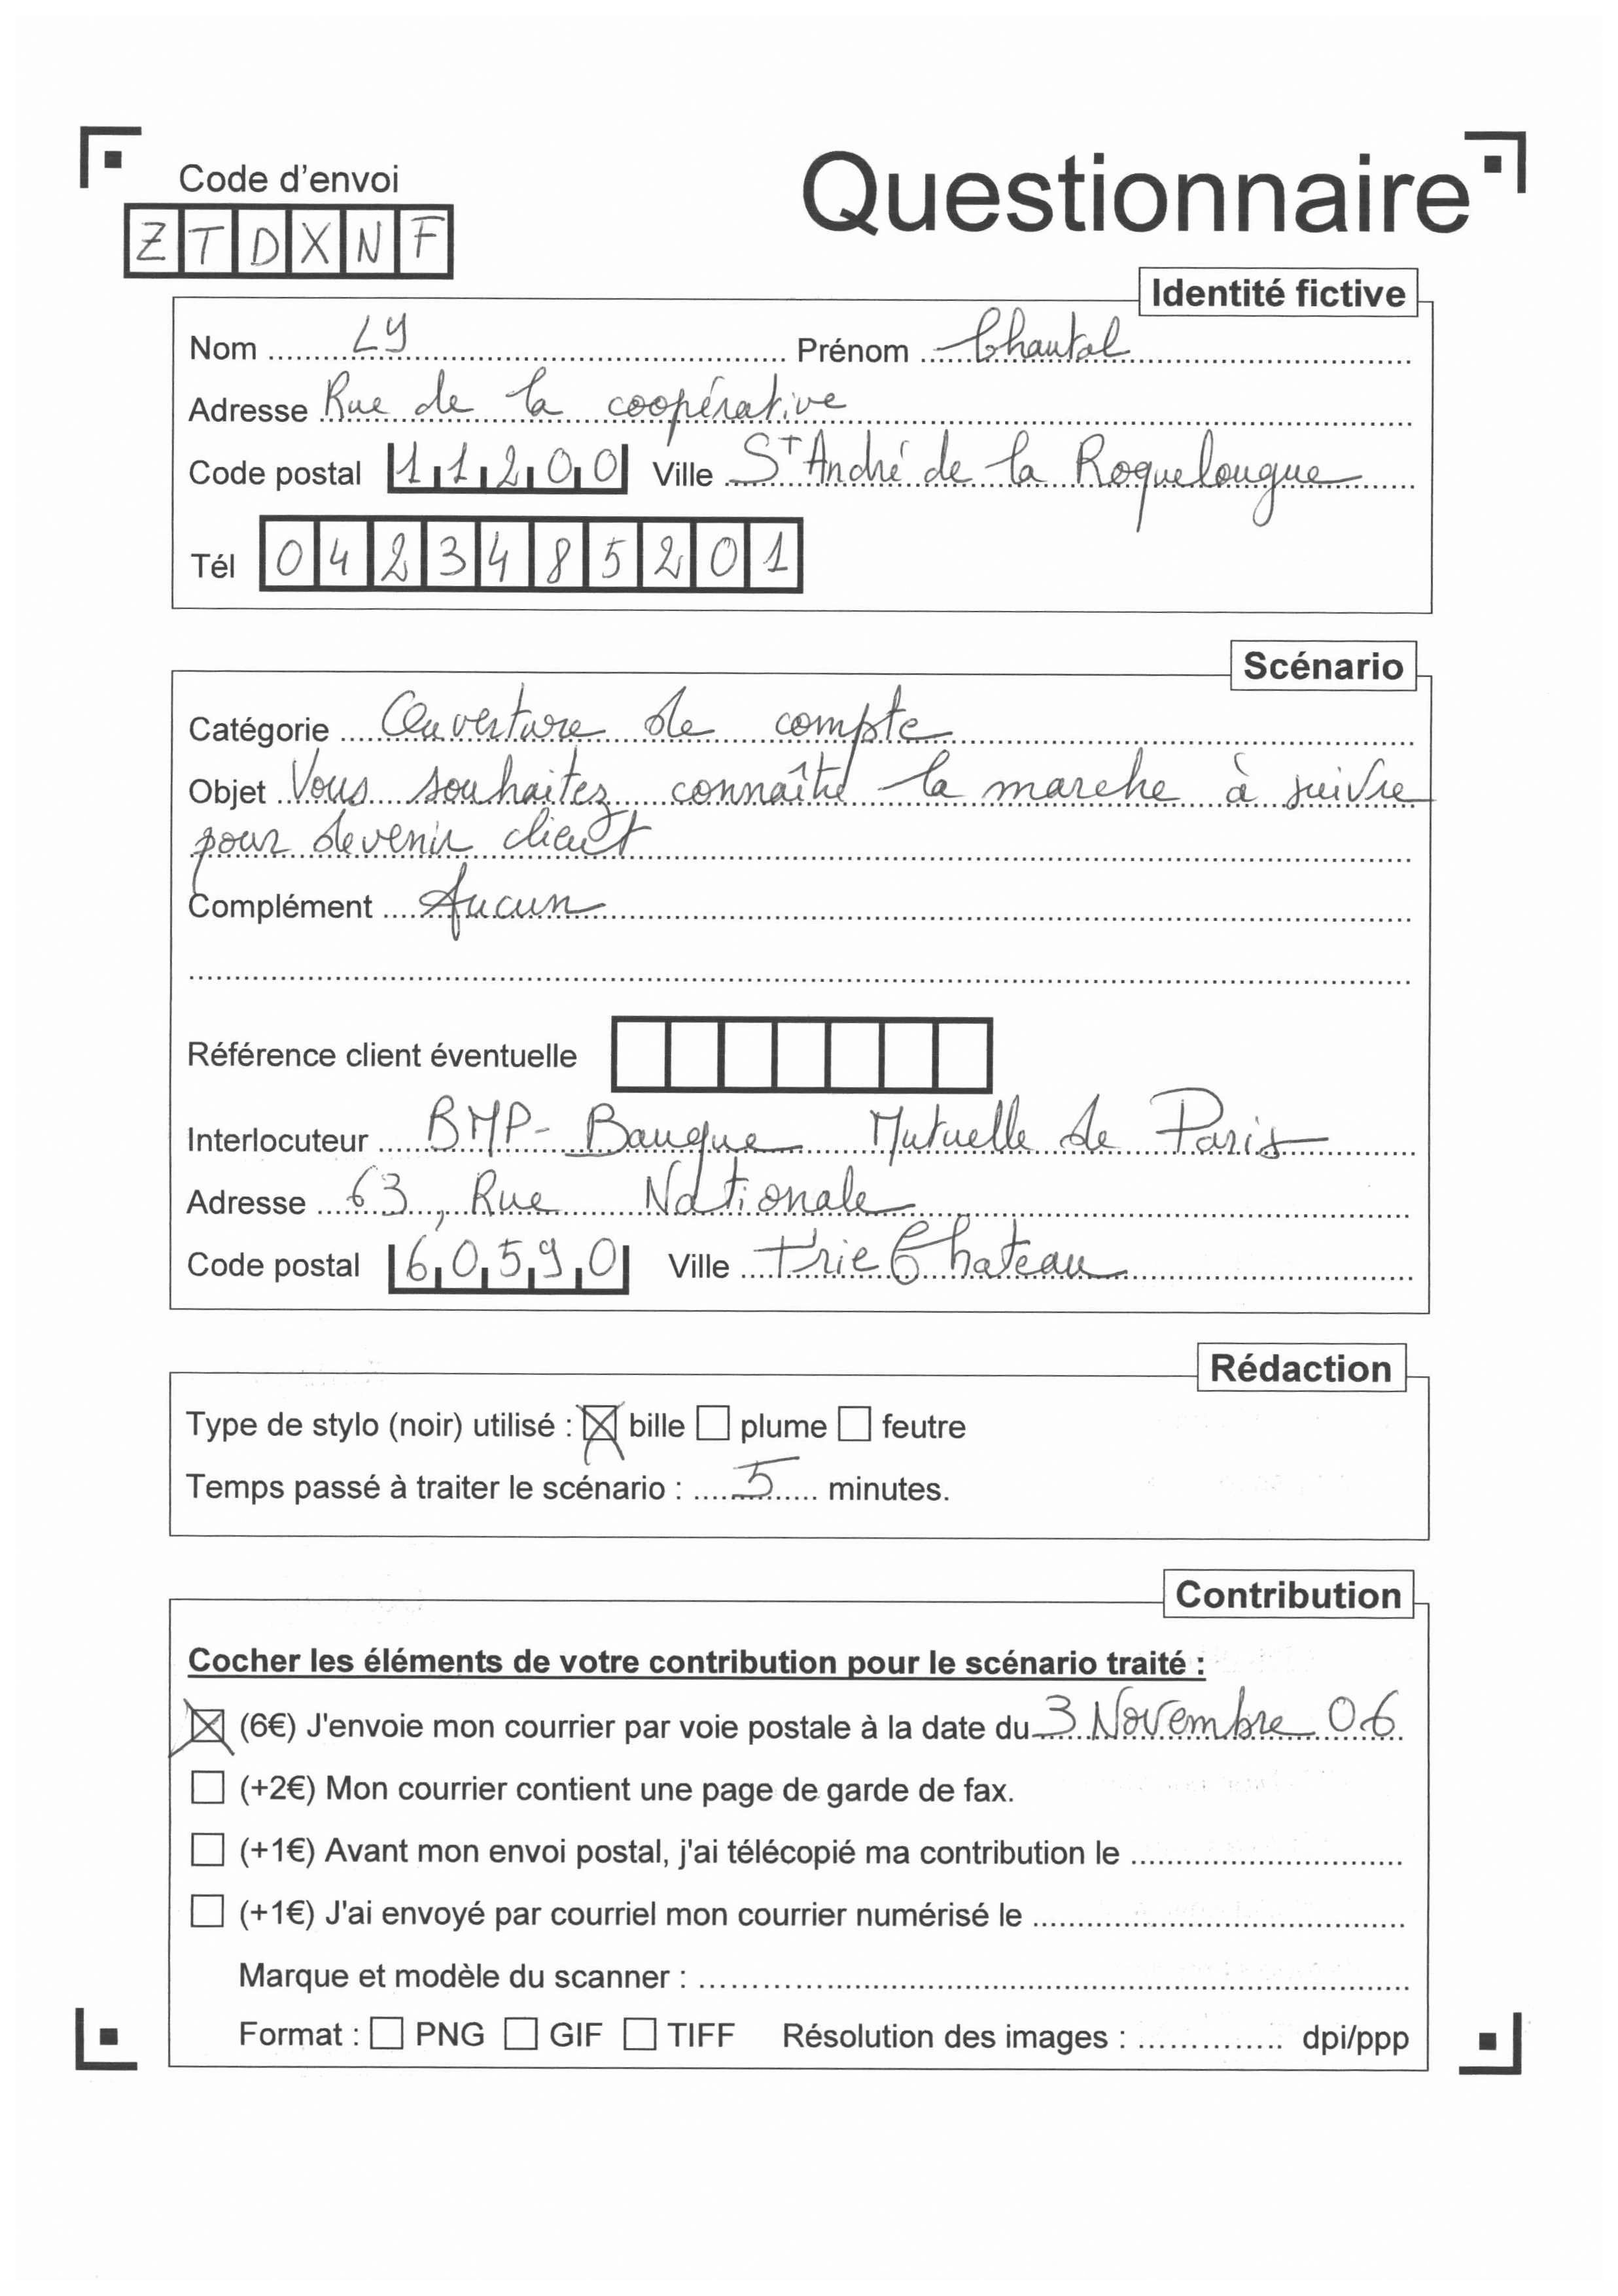 Code d'envoi
Questionnaire
ZTDXNF
Identité fictive
Nom LY Prénom Chantal
Adresse Rue de la coopérative
Code postal 11200 Ville St André de la Roquelongue
Tél 0423485201
Scénario
Catégorie Ouverture de compte
Objet Vous souhaitez connaître la marche à suivre
pour devenir client
Complément Aucun
Référence client éventuelle
Interlocuteur BMP- Banque Mutuelle de Paris
Adresse 63, Rue Nationale
Code postal 60590 Ville Trie Chateau
Rédaction
Type de stylo (noir) utilisé : bille plume feutre
Temps passé à traiter le scénario : 5 minutes.
Contribution
Cocher les éléments de votre contribution pour le scénario traité :
(6€) J'envoie mon courrier par voie postale à la date du 3 Novembre 06
(+2€) Mon courrier contient une page de garde de fax.
(+1€) Avant mon envoi postal, j'ai télécopié ma contribution le
(+1€) J'ai envoyé par courriel mon courrier numérisé le
Marque et modèle du scanner :
Format : PNG GIF TIFF Résolution des images : dpi/ppp